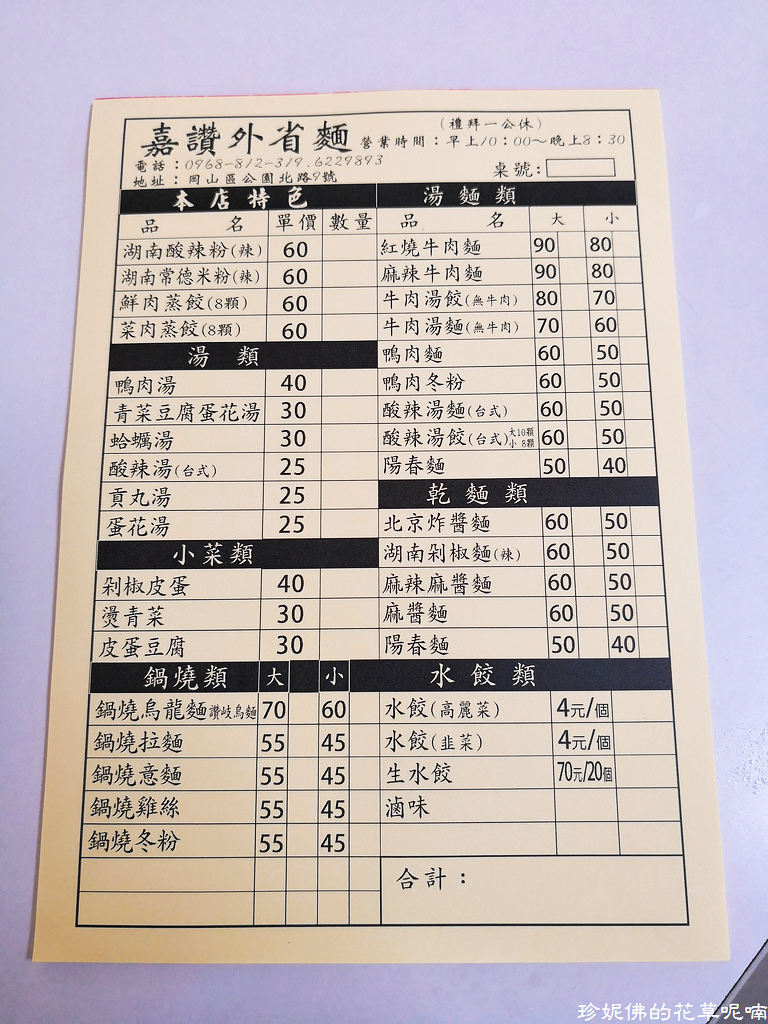 嘉讚外省麵
(禮拜一公休)
營業時間：早上10：00～晚上8：30
電話：0968-812-319.6229893
地址：岡山區公園北路9號
桌號：
本店特色
品名 單價 數量
湖南酸辣粉(辣) 60
湖南常德米粉(辣) 60
鮮肉蒸餃(8顆) 60
菜肉蒸餃(8顆) 60
湯類
鴨肉湯 40
青菜豆腐蛋花湯 30
蛤蠣湯 30
酸辣湯(台式) 25
貢丸湯 25
蛋花湯 25
小菜類
剁椒皮蛋 40
燙青菜 30
皮蛋豆腐 30
鍋燒類 大 小
鍋燒烏龍麵讚岐烏麵 70 60
鍋燒拉麵 55 45
鍋燒意麵 55 45
鍋燒雞絲 55 45
鍋燒冬粉 55 45
湯麵類
品名 大 小
紅燒牛肉麵 90 80
麻辣牛肉麵 90 80
牛肉湯餃(無牛肉) 80 70
牛肉湯麵(無牛肉) 70 60
鴨肉麵 60 50
鴨肉冬粉 60 50
酸辣湯麵(台式) 60 50
酸辣湯餃(台式)大10顆 小8顆 60 50
陽春麵 50 40
乾麵類
北京炸醬麵 60 50
湖南剁椒麵(辣) 60 50
麻辣麻醬麵 60 50
麻醬麵 60 50
陽春麵 50 40
水餃類
水餃(高麗菜) 4元/個
水餃(韭菜) 4元/個
生水餃 70元/20個
滷味
合計：
珍妮佛的花草呢喃